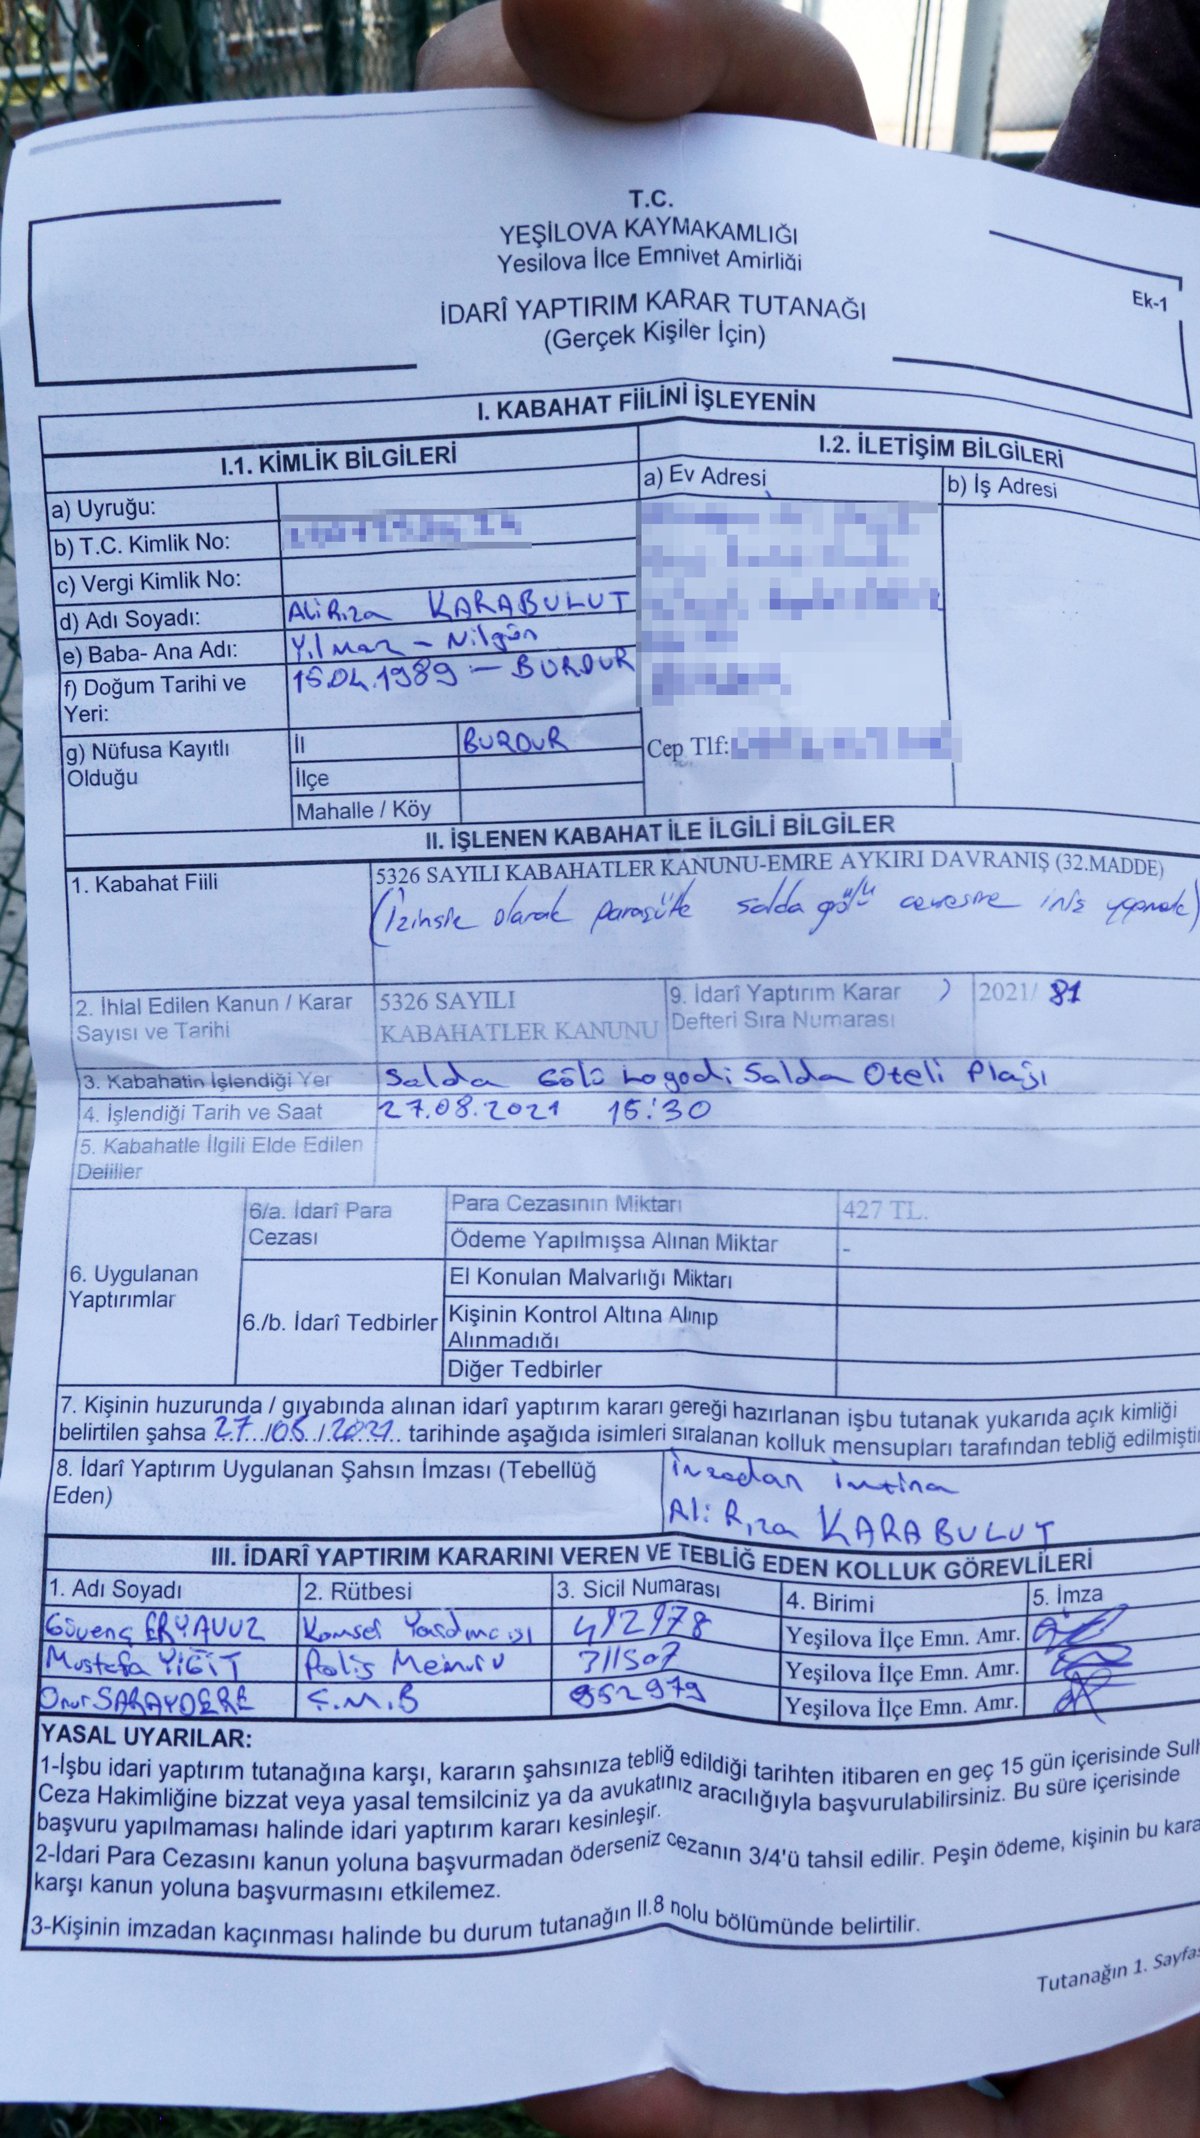 T.C.
YEŞİLOVA KAYMAKAMLIĞI
Yesilova İlce Emnivet Amirliği
İDARÎ YAPTIRIM KARAR TUTANAĞI
(Gerçek Kişiler İçin)
Ek-1
I. KABAHAT FİİLİNİ İŞLEYENİN
I.1. KİMLİK BİLGİLERİ
I.2. İLETİŞİM BİLGİLERİ
a) Uyruğu:
a) Ev Adresi
b) İş Adresi
b) T.C. Kimlik No:
c) Vergi Kimlik No:
d) Adı Soyadı: Ali Rıza KARABULUT
e) Baba- Ana Adı: Yılmaz - Nilgün
f) Doğum Tarihi ve
Yeri:
15.04.1989 - BURDUR
g) Nüfusa Kayıtlı
Olduğu
İl BURDUR
İlçe
Mahalle / Köy
Cep Tlf:
II. İŞLENEN KABAHAT İLE İLGİLİ BİLGİLER
1. Kabahat Fiili
5326 SAYILI KABAHATLER KANUNU-EMRE AYKIRI DAVRANIŞ (32.MADDE)
(İzinsiz olarak paraşütle salda gölü çevresine iniş yapmak)
2. İhlal Edilen Kanun / Karar
Sayısı ve Tarihi
5326 SAYILI
KABAHATLER KANUNU
9. İdarî Yaptırım Karar
Defteri Sıra Numarası
2021/ 81
3. Kabahatin İşlendiği Yer Salda Gölü Lagodi Salda Oteli Plajı
4. İşlendiği Tarih ve Saat 27.08.2021 15:30
5. Kabahatle İlgili Elde Edilen
Deliller
6. Uygulanan
Yaptırımlar
6/a. İdarî Para
Cezası
Para Cezasının Miktarı 427 TL.
Ödeme Yapılmışsa Alınan Miktar -
6./b. İdarî Tedbirler
El Konulan Malvarlığı Miktarı
Kişinin Kontrol Altına Alınıp
Alınmadığı
Diğer Tedbirler
7. Kişinin huzurunda / gıyabında alınan idarî yaptırım kararı gereği hazırlanan işbu tutanak yukarıda açık kimliği
belirtilen şahsa 27/08/2021 tarihinde aşağıda isimleri sıralanan kolluk mensupları tarafından tebliğ edilmiştir
8. İdarî Yaptırım Uygulanan Şahsın İmzası (Tebellüğ
Eden)
İmzadan İmtina
Ali Rıza KARABULUT
III. İDARÎ YAPTIRIM KARARINI VEREN VE TEBLİĞ EDEN KOLLUK GÖREVLİLERİ
1. Adı Soyadı 2. Rütbesi 3. Sicil Numarası 4. Birimi 5. İmza
Güvenç ERYAVUZ Komiser Yardımcısı 492978 Yeşilova İlçe Emn. Amr.
Mustafa YİĞİT Polis Memuru 311507 Yeşilova İlçe Emn. Amr.
Onur SARAYDERE Ç.M.B 952979 Yeşilova İlçe Emn. Amr.
YASAL UYARILAR:
1-İşbu idari yaptırım tutanağına karşı, kararın şahsınıza tebliğ edildiği tarihten itibaren en geç 15 gün içerisinde Sulh
Ceza Hakimliğine bizzat veya yasal temsilciniz ya da avukatınız aracılığıyla başvurulabilirsiniz. Bu süre içerisinde
başvuru yapılmaması halinde idari yaptırım kararı kesinleşir.
2-İdari Para Cezasını kanun yoluna başvurmadan öderseniz cezanın 3/4'ü tahsil edilir. Peşin ödeme, kişinin bu kara
karşı kanun yoluna başvurmasını etkilemez.
3-Kişinin imzadan kaçınması halinde bu durum tutanağın II.8 nolu bölümünde belirtilir.
Tutanağın 1. Sayfas